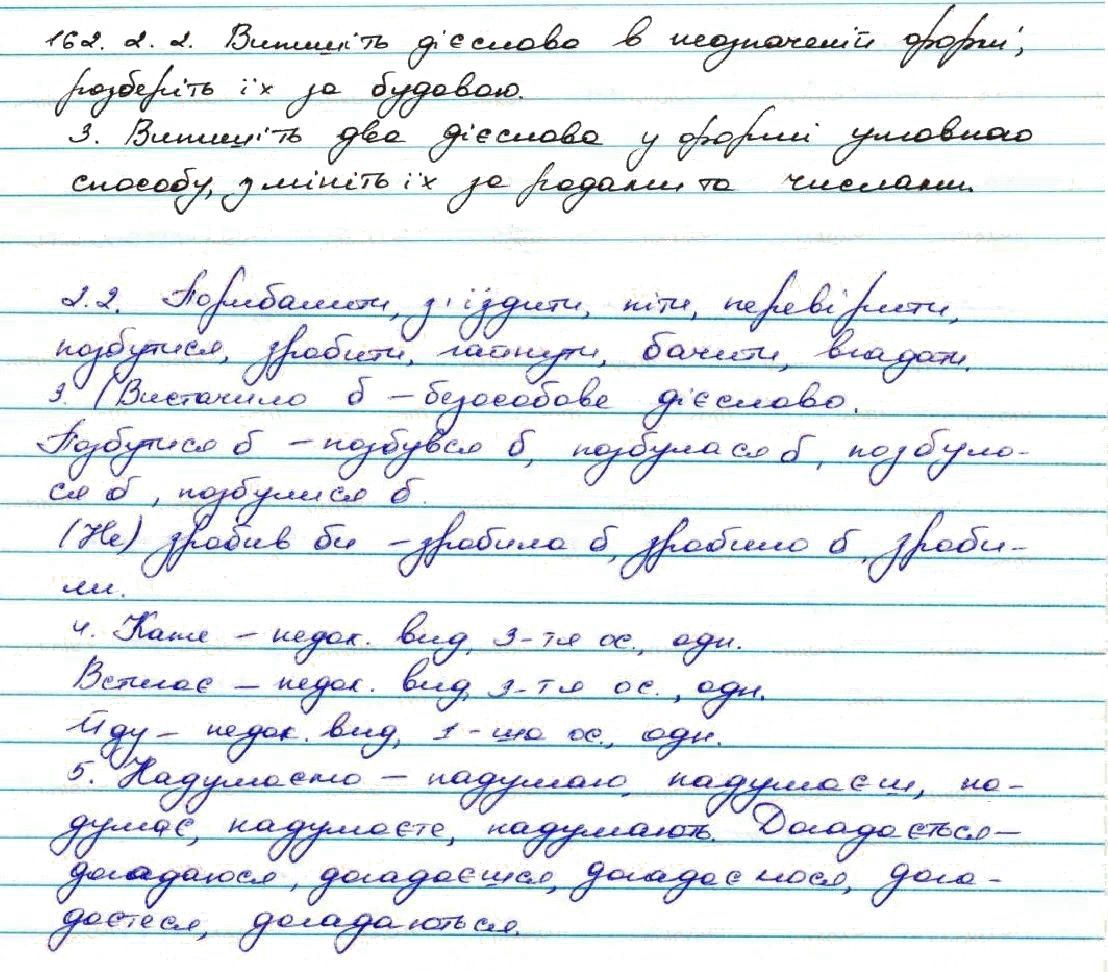 162. 2. 2. Випишіть дієслова в неозначеній формі,
розберіть їх за будовою.
3. Випишіть два дієслова у формі умовного
способу, змініть їх за родами та числами.
2.2. Порибалити, з'їздити, піти, перевірити,
позбутися, зробити, гайнути, бачити, вгадати.
3. (Вистачило б – безособове дієслово.
Позбутися б – позбувся б, позбулася б, позбуло-
ся б, позбулися б.
(Не) зробив би – зробила б, зробило б, зроби-
ли.
4. Каже – недок. вид, 3-тя ос., одн.
Встигає – недок. вид, 3-тя ос., одн.
Йду – недок. вид, 1-ша ос., одн.
5. Надумаємо – надумаю, надумаєш, на-
думає, надумаєте, надумають. Догадається –
догадаюся, догадаєшся, догадаємося, дога-
даєтеся, догадаються.